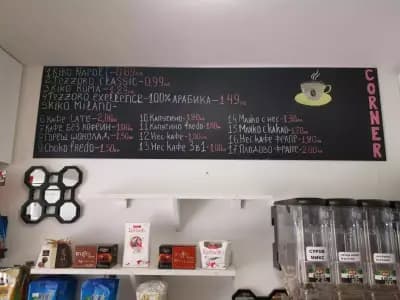 1 KIKO NAPOLI - 0.89лв
2 TEZZORO CLASSIC - 0.99лв
3 KIKO ROMA - 1.29лв
4 TEZZORO EXELLENCE - 100% АРАБИКА - 1.49лв
5 KIKO MILANO -
6 КАФЕ LATE - 2.00лв
7 КАФЕ БЕЗ КОФЕИН - 1.00лв
8 ГОРЕЩ ШОКОЛАД - 1.50лв
9 CHOKO FREDO - 1.50лв
10 КАПУЧИНО - 1.50лв
11 КАПУЧИНО FREDO - 1.50лв
12 НЕС КАФЕ - 1.00лв
13 НЕС КАФЕ 3в1 - 1.00лв
14 МЛЯКО С НЕС - 1.30лв
15 МЛЯКО С КАКАО - 1.70лв
16 НЕС КАФЕ ФРАПЕ - 1.80лв
17 ПЛОДОВО ФРАПЕ - 2.00лв
CORNER